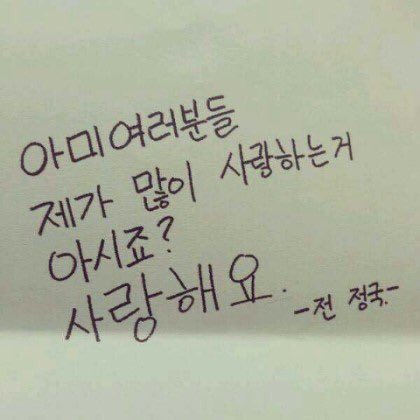 아미여러분들
제가 많이 사랑하는거
아시죠?
사랑해요.
-전 정국.-